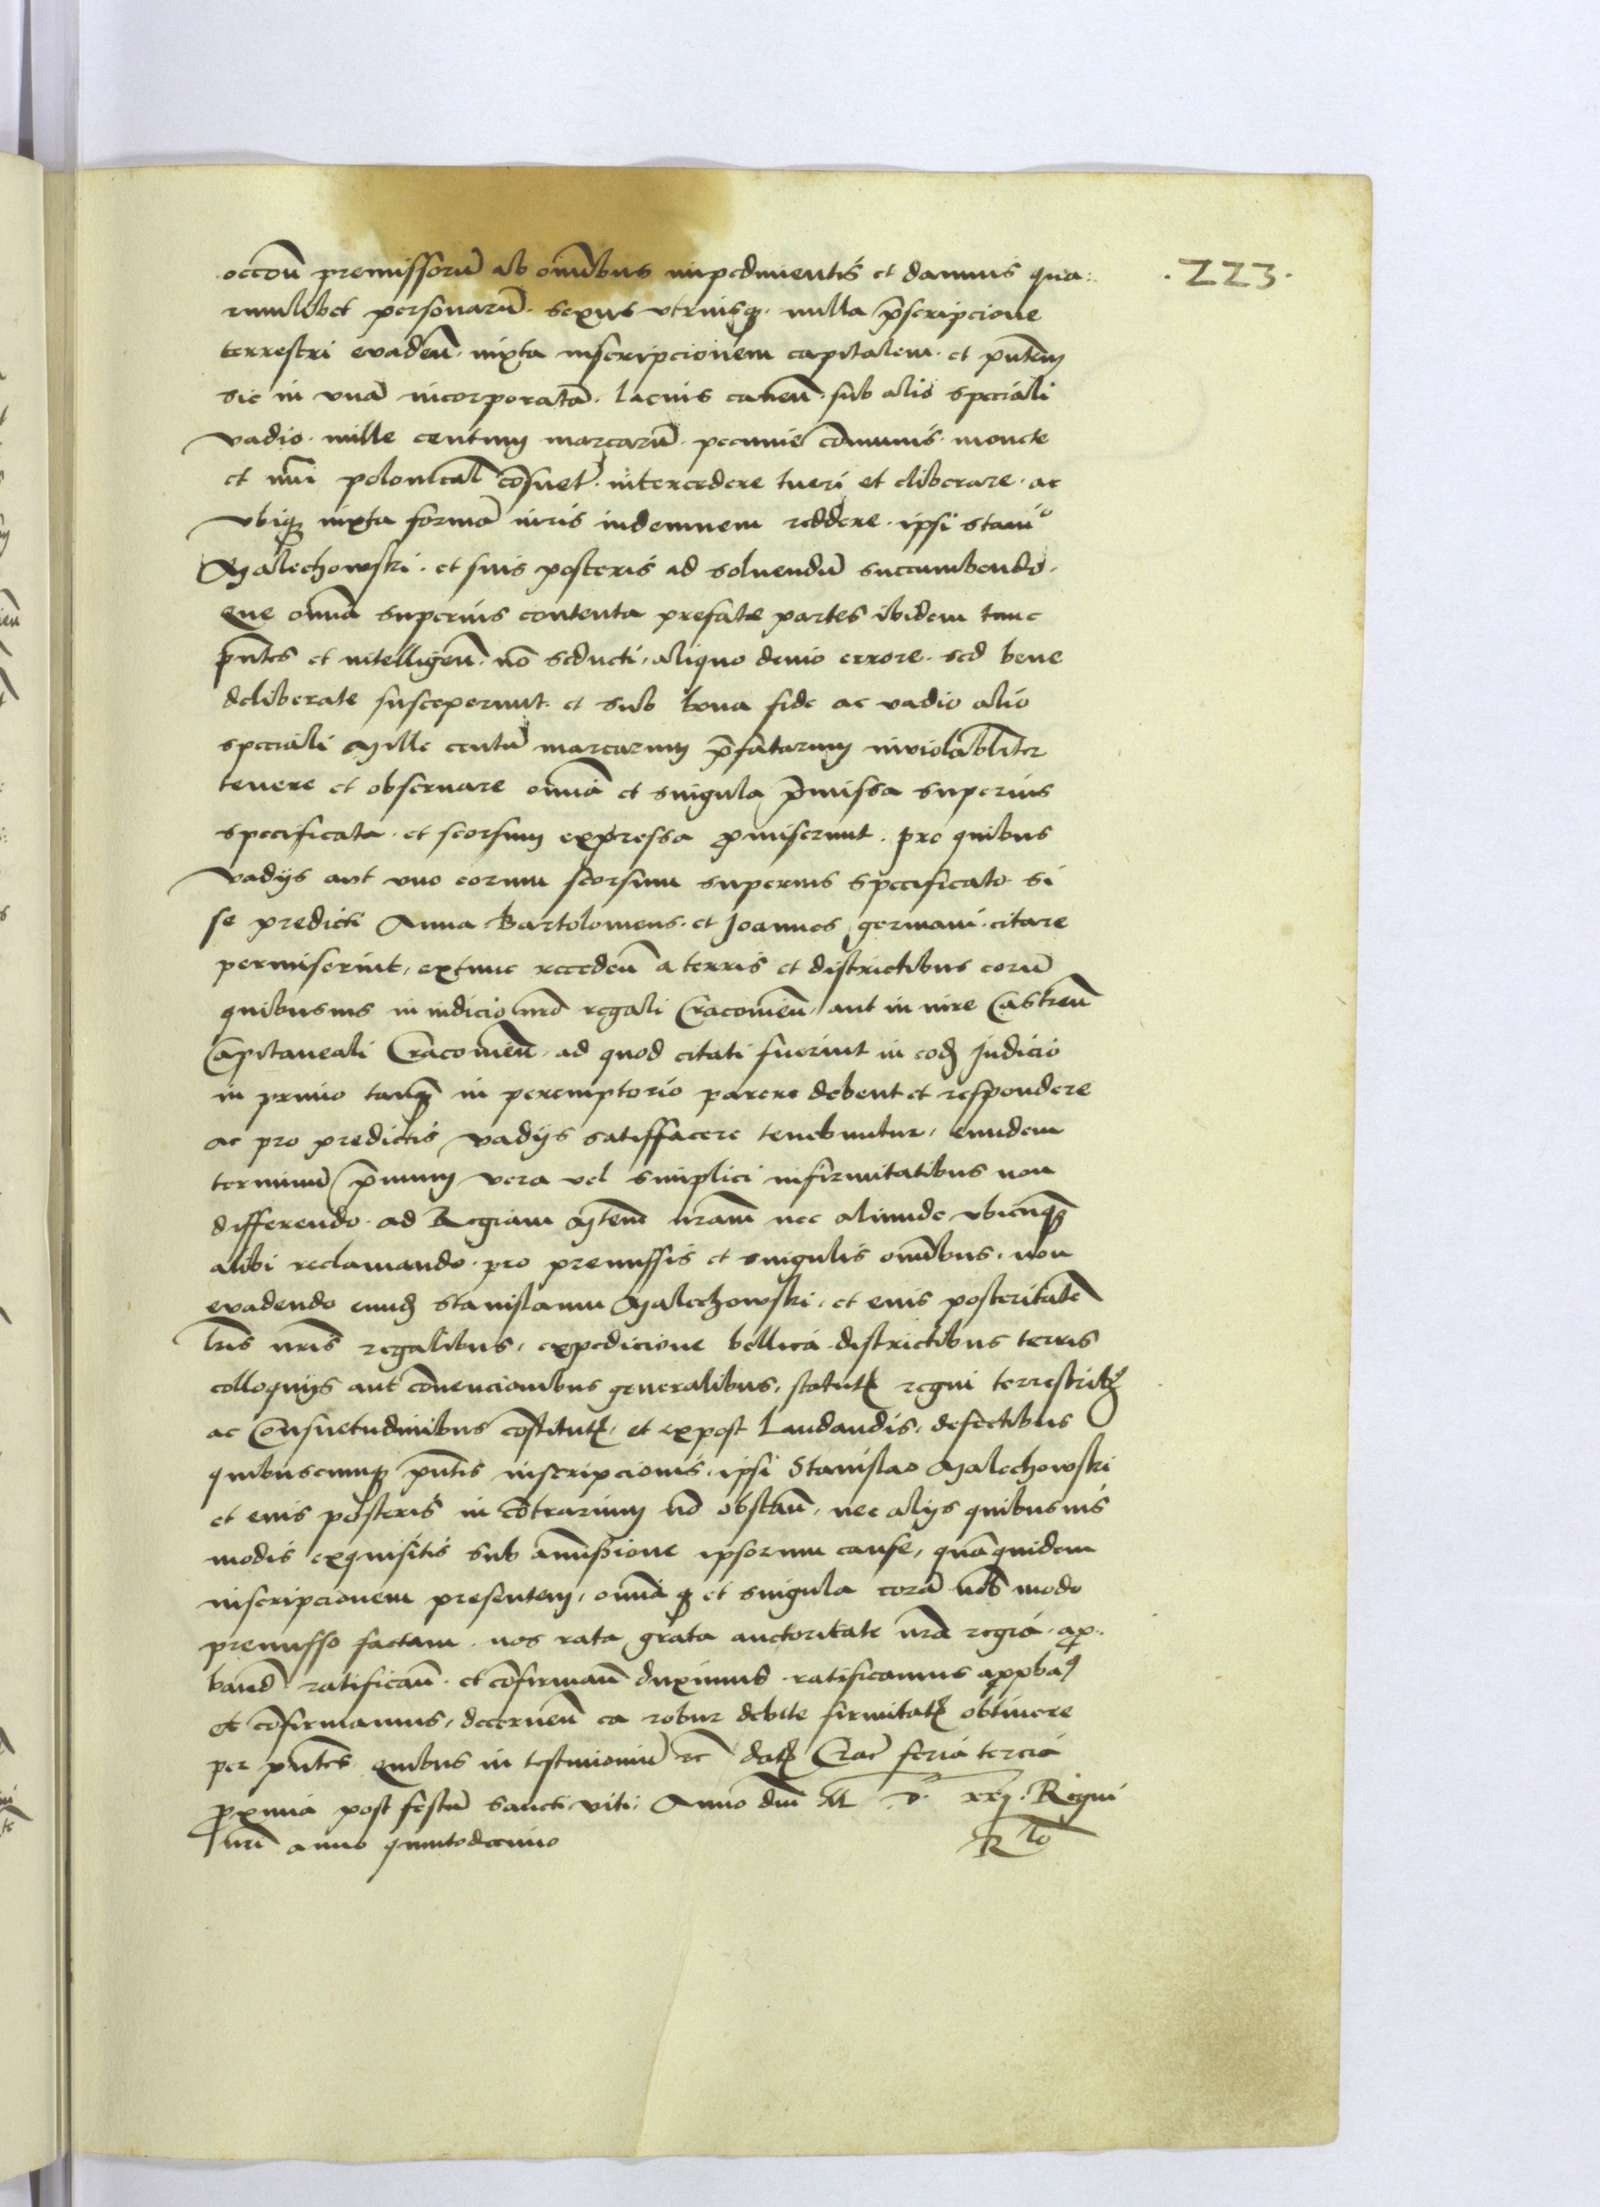 occoñ premissorũ ab oĩnibus impedimentis et damnis qua: .223.
rumlibet personarũ. sexus vtriusqꝫ. nulla p̃scripcione
terrestri evadeñ. iuxta inscripcionem capitalem. et pñtem
sic in vnã incorporatã. lacius caveñ. sub alio speciali
vadio. mille centum marcarũ. pecunie cõmunis. monete
et nũi polonical̃ cõsuet̃. intercedere tueri et eliberare. ac
vbiqꝫ iuxta formã iuris indemnem reddere. ipsi stanᵒ
Malechowski. et suis posteris ad soluendũ succumbendo.
Que oĩa superius contenta prefate partes ibidem tunc
pñtes et intelligeñ. nõ seducti, aliquo devio errore. sed bene
deliberate susceperunt. et sub bona fide ac vadio alio
speciali Mille centũ marcarum p̃fatarum inviolabliter
tenere et obseruare oĩa et singula p̃missa superius
specificata. et seorsum expressa ꝓmiserunt. pro quibus
vadijs aut vno eorum seorsum superius specificato. si
se predicti Anna Bartolomeus. et Joannes germani. citare
permiserint, extunc recedeñ a terris et districtibus eorũ
quibusuis in iudicio nr̃o regali Cracovieñ, aut in iure Castreñ
Capitaneali Cracovieñ. ad quod citati fuerint in eodꝫ Judicio
in primo tanqꝫ in peremptorio parere debent et respondere
ac pro predictis vadijs satisfacere tenebuntur, eundem
terminũ p̃mum vera vel simplici infirmitatibus non
differendo. ad Regiam Mtem nr̃am nec aliunde vbicunqꝫ
alibi reclamando. pro premissis et singulis oĩnibus. non
evadendo eundꝫ Stanislaum Malechowski, et eius posteritatẽ
lr̃is nr̃is regalibus, expedicione bellica. districtibus terris
colloquijs aut cõuencionibus generalibus, statutꝭ regni terrestribꝫ
ac cõnsuetudinibus cõstitutꝭ, et expost laudandis, defectibus
quibuscumqꝫ pñtis inscripcionis, ipsi Stanislao Malechowski
et eius posteris in cõtrarium nõ obstañ, nec alijs quibusuis
modis exquisitis sub amissione ipsorum cause, quãquidem
inscripcionem presentem, oĩaqꝫ et singula corã nob modo
premisso factam. nos rata grata auctoritate nr̃a regia. apꝓ:
band̃ ratificañ. et cõfirmañ duximus. ratificamus apꝓbaꝰ
et cõfirmamus, decerneñ ea robur debite firmitatꝭ obtinere
per pñtes quibus in testimoniũ ⁊c̃ datꝭ Crac̃ feria tercia
ꝓxima post festũ sancti viti, Anno dñi M D xxj. Regni
nr̃i anno quintodecimo Rᵗᵒ